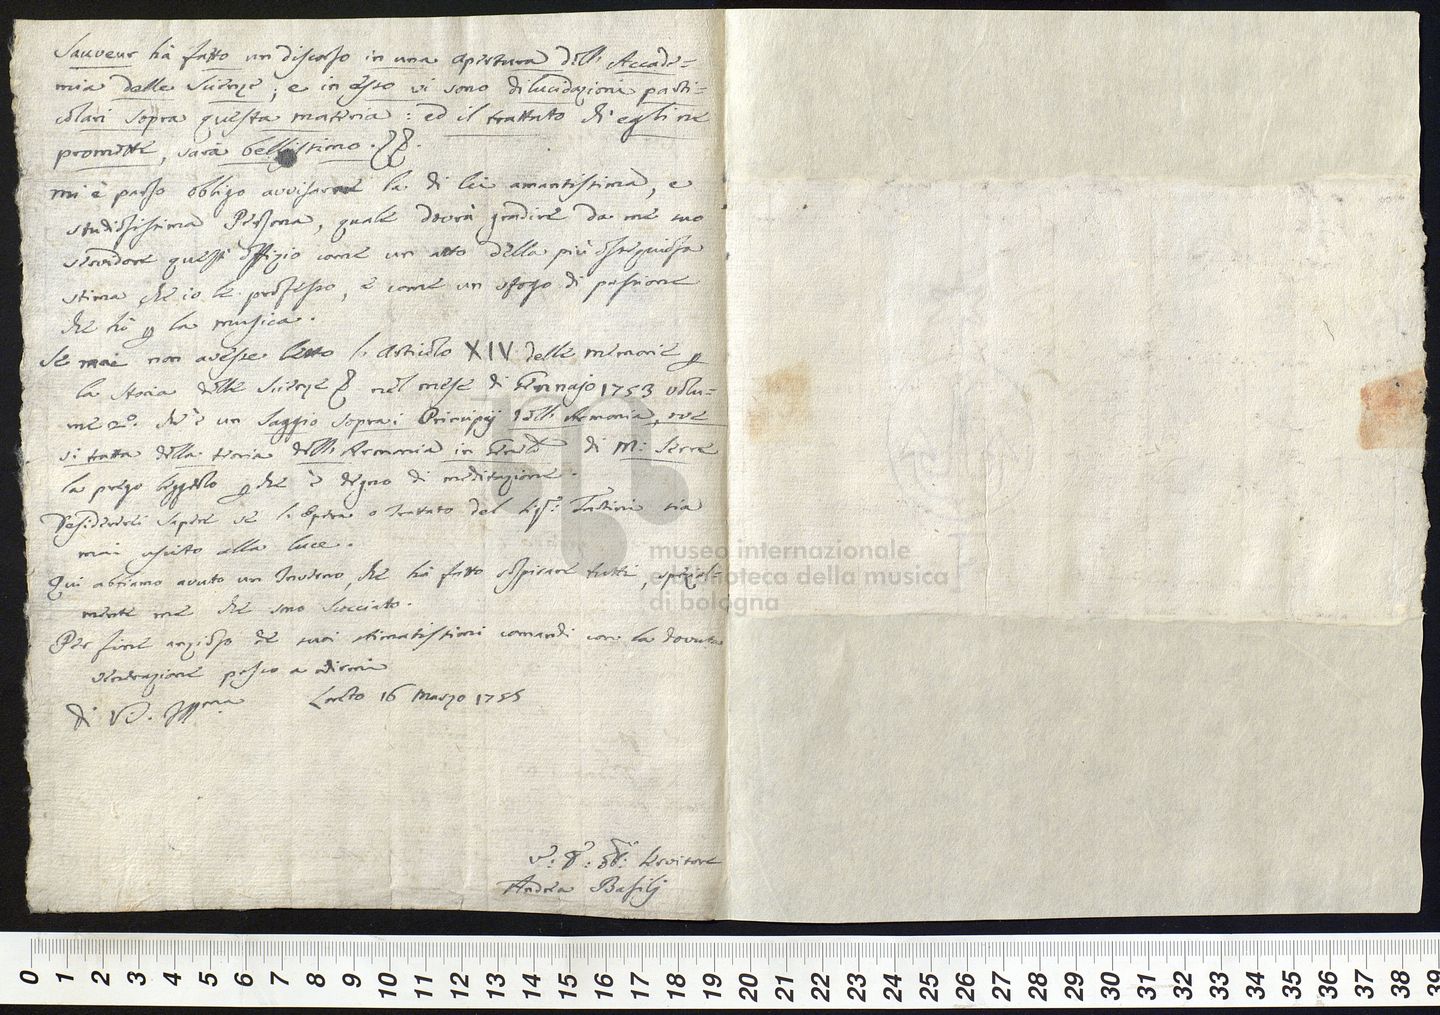 Sauveur hà fatto un discorso in una apertura dell' Accade=
mia delle Scienze; e in esso vi sono dilucidazioni parti=
colari sopra questa materia: ed il trattato ch'egli ne
promette, sarà bellissimo.
mi è parso obligo avvisarne la di lei amantissima, e
studiosissima Persona, quale dovrà gradire da me suo
servidore quest' offizio come un atto della più ossequiosa
stima che io le professo, e come un sfogo di passione
che hò p la musica.
Se mai non avesse letto l' Articolo XIV delle memorie p
la storia delle Scienze nel mese di Gennajo 1753 volu=
me 2º. ch' è un Saggio sopra i Principij dell' Armonia, ove
si tratta della teoria dell' Armonia in di M: Serre
la prego leggerlo p che è degno di meditazione.
Desidererei sapere se l' Opera o Trattato del Sigʳ: Tartini sia
mai uscito alla luce.
Qui abbiamo avuto un Inverno, che hà fatto sospirare tutti, special=
mente me che sono
Per fine ansioso de suoi stimatissimi comandi con la dovuta
venerazione passo a dirmi
di V. S. Loreto 16 Marzo 1755
Servitore
Andrea Basilj
museo internazionale
e biblioteca della musica
di bologna
0 1 2 3 4 5 6 7 8 9 10 11 12 13 14 15 16 17 18 19 20 21 22 23 24 25 26 27 28 29 30 31 32 33 34 35 36 37 38 39